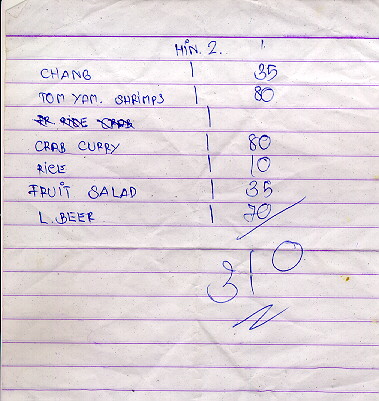 MIN. 2.
CHANG 1 35
TOM YAM. SHRIMPS 1 80
FR. RICE CRAB 1
CRAB CURRY 1 80
RICE 1 10
FRUIT SALAD 1 35
L. BEER 1 70
310